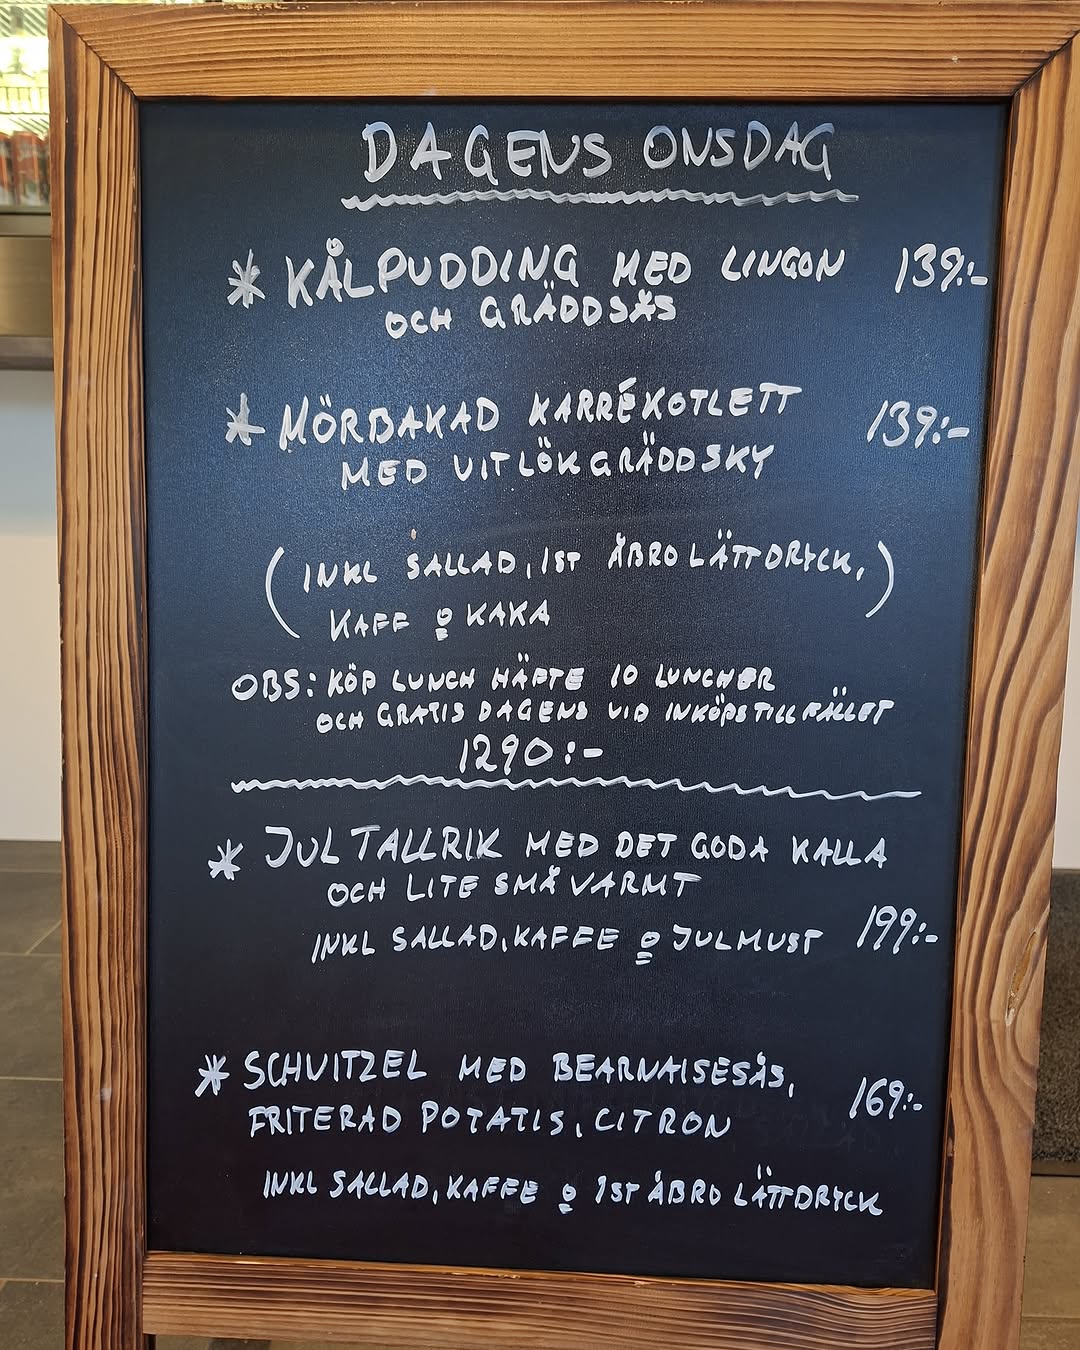 DAGENS ONSDAG
* KÅLPUDDING MED LINGON 139:-
OCH GRÄDDSÅS
* MÖRBAKAD KARRÉKOTLETT 139:-
MED VITLÖKGRÄDDSKY
(INKL SALLAD, 1ST ÅBRO LÄTTDRYCK,)
KAFF o KAKA
OBS: KÖP LUNCH HÄFTE 10 LUNCHER
OCH GRATIS DAGENS VID INKÖPSTILLFÄLLET
1290:-
* JUL TALLRIK MED DET GODA KALLA
OCH LITE SMÅ VARMT
INKL SALLAD, KAFFE o JULMUST 199:-
* SCHVITZEL MED BEARNAISESÅS, 169:-
FRITERAD POTATIS, CITRON
INKL SALLAD, KAFFE o 1ST ÅBRO LÄTTDRYCK